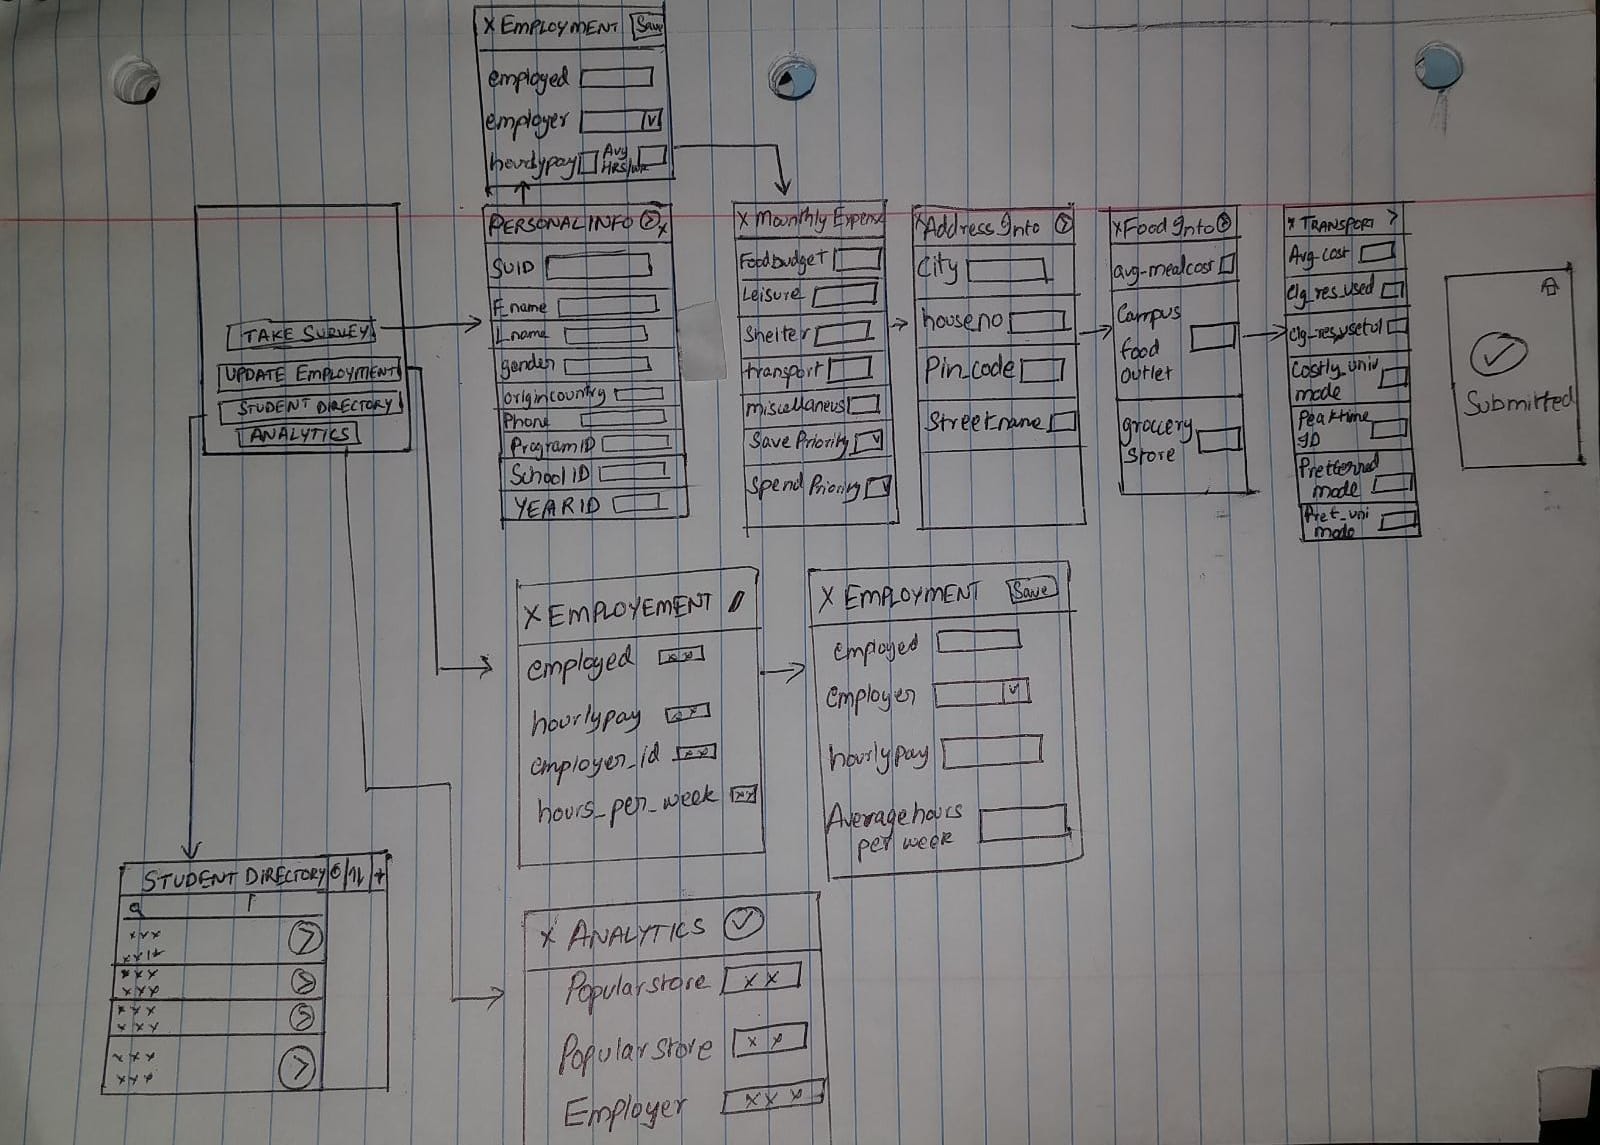 X EMPLOYMENT Save
employed
employer
hourlypay Avg HRS/wk
TAKE SURVEY
UPDATE EMPLOYMENT
STUDENT DIRECTORY
ANALYTICS
PERSONAL INFO
SUID
F_name
L_name
gender
origincountry
Phone
ProgramID
School ID
YEAR ID
X Monthly Expense
Foodbudget
Leisure
Shelter
transport
miscellaneus
Save Priority
Spend Priority
X Address Info
City
houseno
Pin_code
Streetname
X Food Info
avg-mealcost
Campus
food
outlet
groccery
store
X TRANSPORT >
Avg-cost
Clg_res_used
Clg_res_useful
Costly_univ
mode
Peaktime
ID
Preferred
mode
Pref_uni
mode
Submitted
X EMPLOYEMENT
employed xx
hourlypay xx
employer_id xx
hours_per_week xx
X EMPLOYMENT Save
employed
employer
hourlypay
Average hours
per week
STUDENT DIRECTORY
xxx
xxx
xxx
xxx
xxx
xxx
xxx
X ANALYTICS
Popular store x x
Popular store x x
Employer x x x